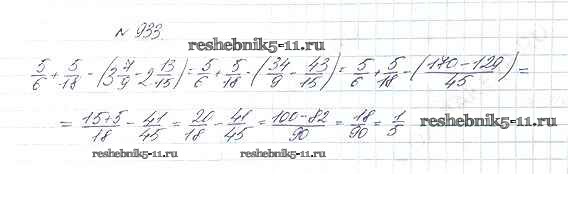 № 933
reshebnik5-11.ru
5/6 + 5/18 - (3 7/9 - 2 13/15) = 5/6 + 5/18 - (34/9 - 43/15) = 5/6 + 5/18 - (170-129/45) =
= 15+5/18 - 41/45 = 20/18 - 41/45 = 100-82/90 = 18/90 = 1/5 reshebnik5-11.ru
reshebnik5-11.ru reshebnik5-11.ru